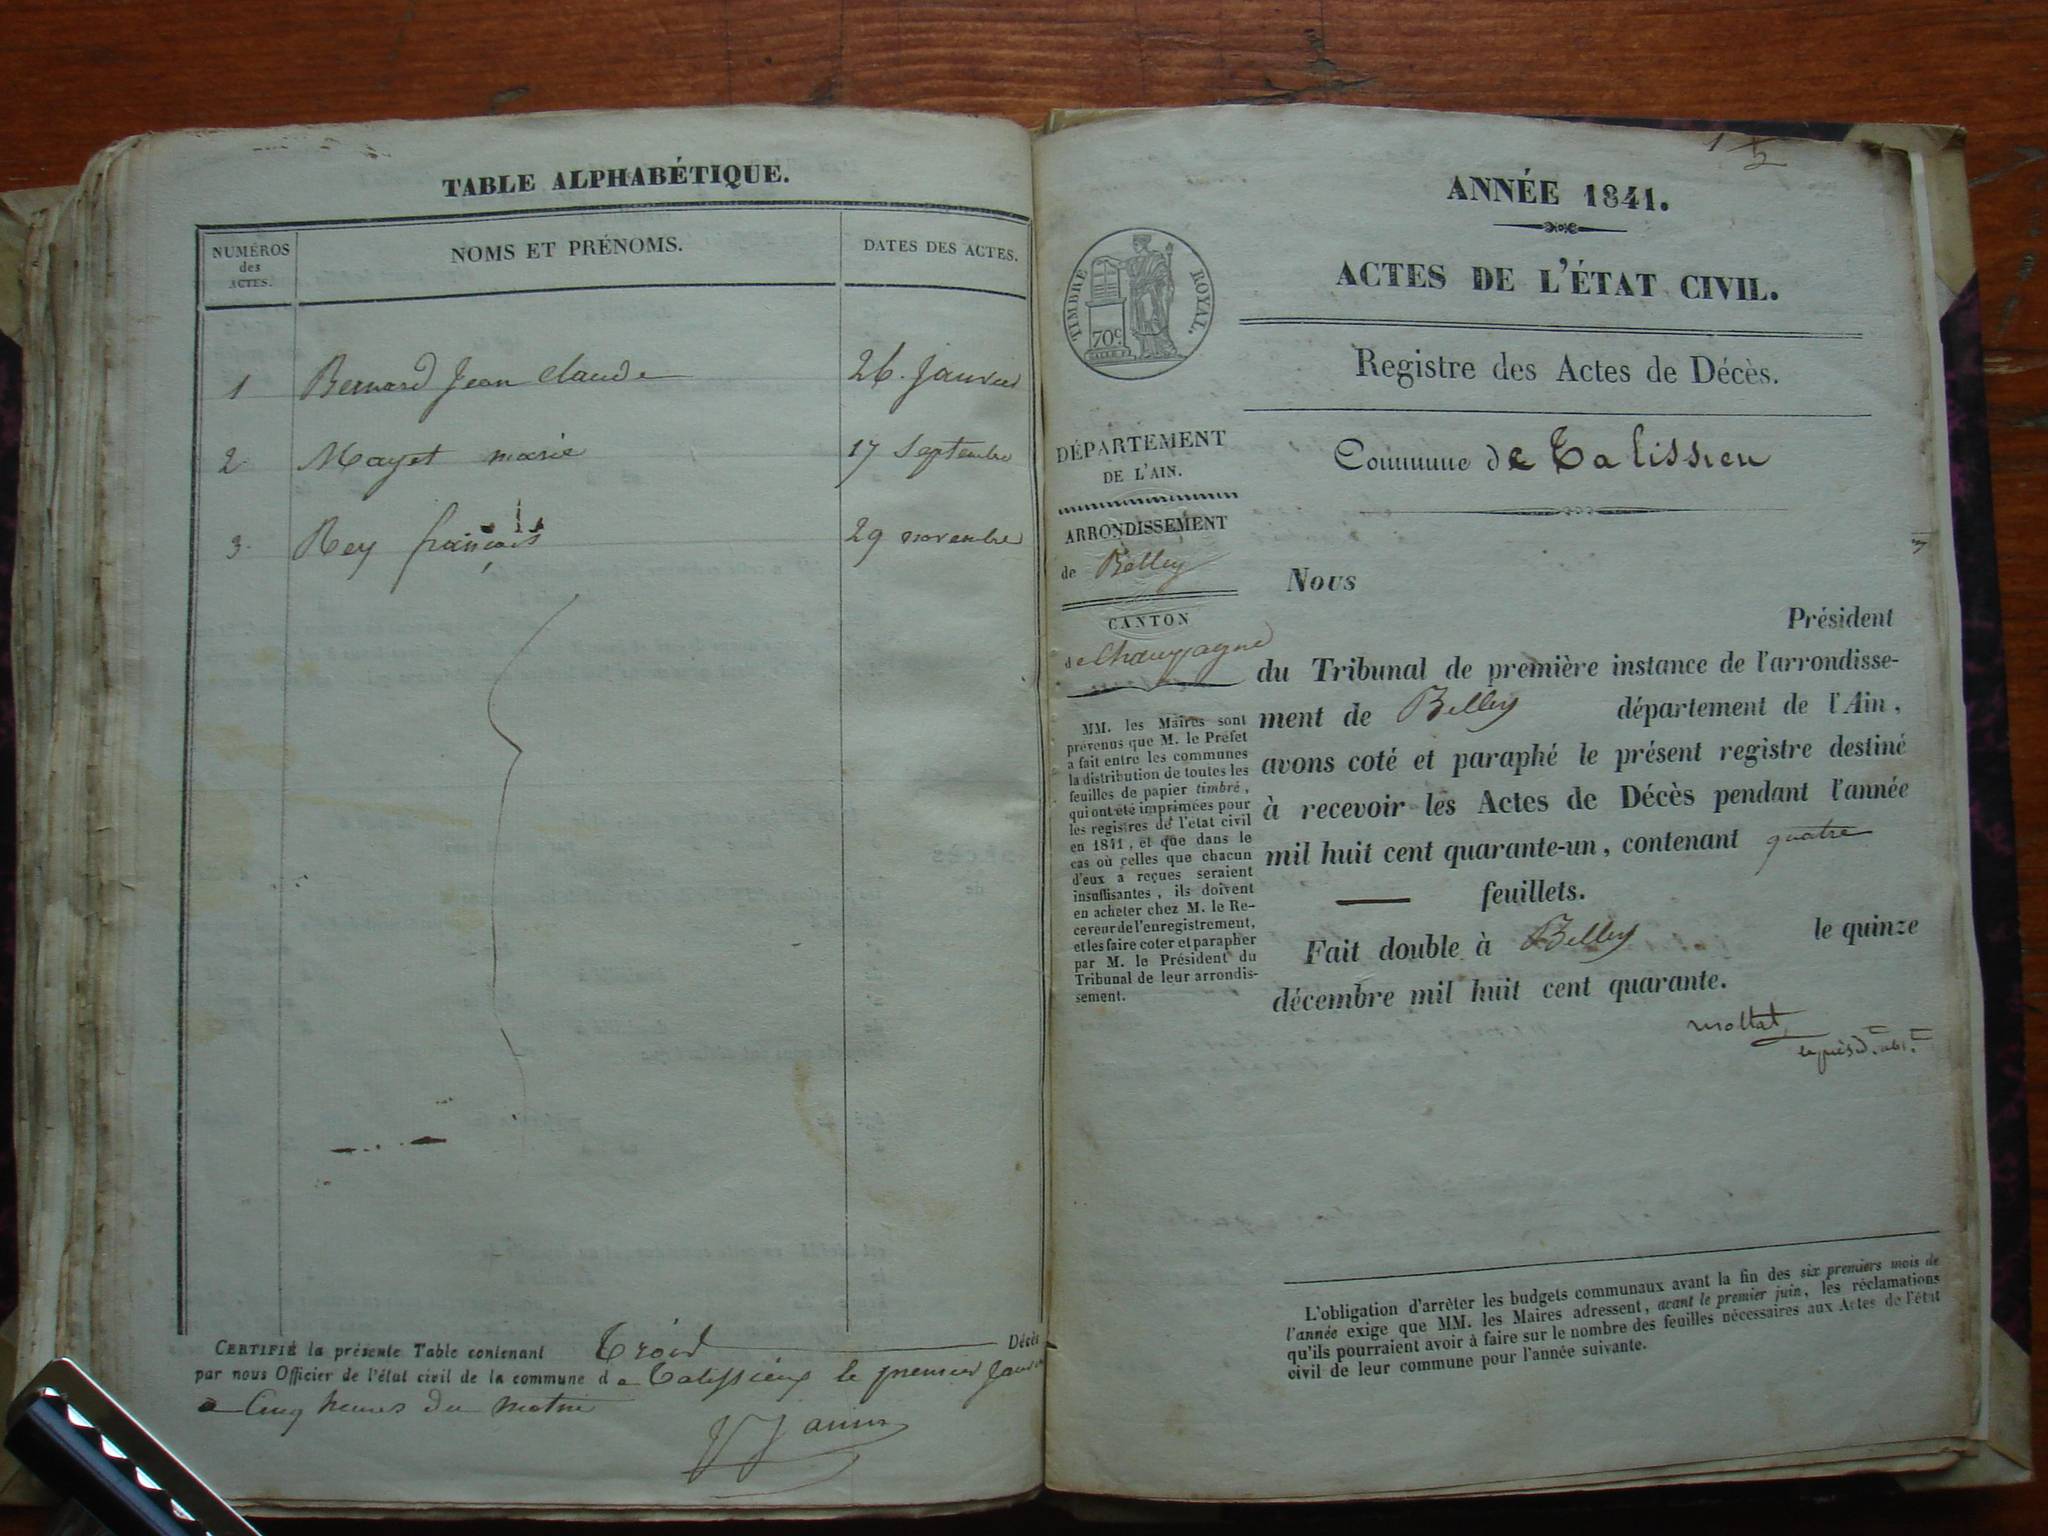 TABLE ALPHABÉTIQUE.
NUMÉROS
des
ACTES.
NOMS ET PRÉNOMS.
DATES DES ACTES.
1 Bernard Jean Claude 26 Janvier
2 Mayet marie 17 Septembre
3 Rey françois 29 novembre
CERTIFIÉ la présente Table contenant Trois Décès
par nous Officier de l'état civil de la commune de Talissieux le premier Janvier
a Cinq heures du matin
Janin
1
ANNÉE 1841.
ACTES DE L'ÉTAT CIVIL.
TIMBRE ROYAL.
70c
Registre des Actes de Décès.
Commune de Talissieu
DÉPARTEMENT
DE L'AIN.
ARRONDISSEMENT
de Belley
CANTON
de Champagne
MM. les Maires sont
prévenus que M. le Préfet
a fait entre les communes
la distribution de toutes les
feuilles de papier timbré,
qui ont été imprimées pour
les registres de l'état civil
en 1841, et que dans le
cas où celles que chacun
d'eux a reçues seraient
insuffisantes, ils doivent
en acheter chez M. le Re-
ceveur de l'enregistrement,
et les faire coter et parapher
par M. le Président du
Tribunal de leur arrondis-
sement.
Nous
Président
du Tribunal de première instance de l'arrondisse-
ment de Belley département de l'Ain,
avons coté et paraphé le présent registre destiné
à recevoir les Actes de Décès pendant l'année
mil huit cent quarante-un, contenant quatre
feuillets.
Fait double à Belley le quinze
décembre mil huit cent quarante.
L'obligation d'arrêter les budgets communaux avant la fin des six premiers mois de
l'année exige que MM. les Maires adressent, avant le premier juin, les réclamations
qu'ils pourraient avoir à faire sur le nombre des feuilles nécessaires aux Actes de l'état
civil de leur commune pour l'année suivante.